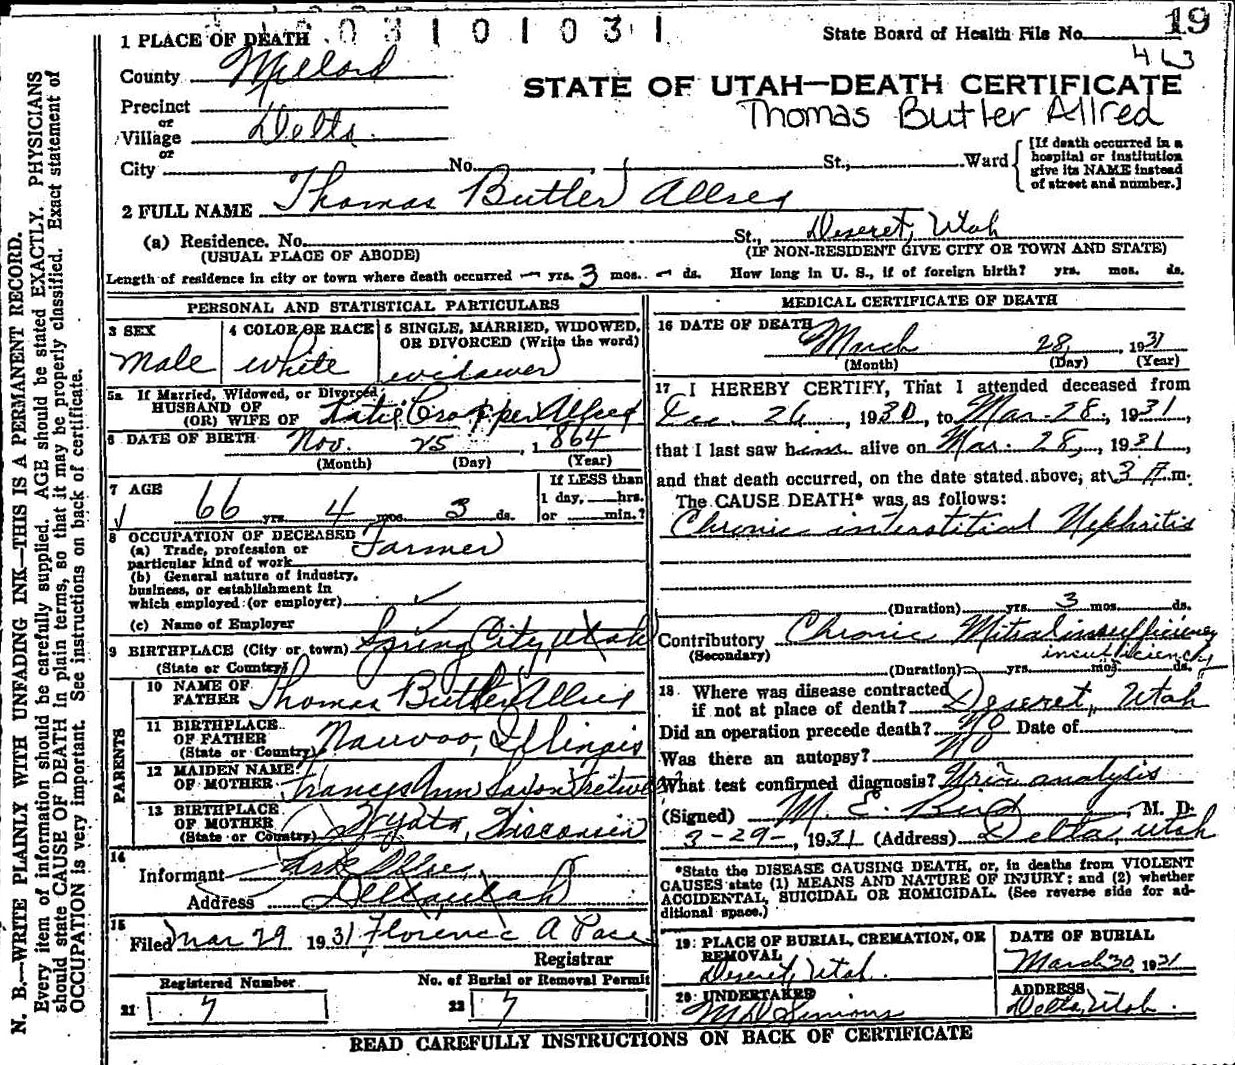 03101031
State Board of Health File No. 19
463
1 PLACE OF DEATH
County Millard
STATE OF UTAH—DEATH CERTIFICATE
Thomas Butler Allred
Precinct
or
Village Delta
or
City No. St., Ward
[If death occurred in a hospital or institution give its NAME instead of street and number.]
2 FULL NAME Thomas Butler Allred
(a) Residence. No. St., Deseret, Utah
(USUAL PLACE OF ABODE) (IF NON-RESIDENT GIVE CITY OR TOWN AND STATE)
Length of residence in city or town where death occurred — yrs. 3 mos. — ds. How long in U. S., if of foreign birth? yrs. mos. ds.
PERSONAL AND STATISTICAL PARTICULARS
3 SEX
Male
4 COLOR OR RACE
white
5 SINGLE, MARRIED, WIDOWED, OR DIVORCED (Write the word)
widower
5a If Married, Widowed, or Divorced
HUSBAND OF
(OR) WIFE OF Katie Cropper Allred
6 DATE OF BIRTH Nov. 25, 1864
(Month) (Day) (Year)
7 AGE
66 yrs. 4 mos. 3 ds.
If LESS than
1 day, hrs.
or min.?
8 OCCUPATION OF DECEASED
(a) Trade, profession or
particular kind of work Farmer
(b) General nature of industry,
business, or establishment in
which employed (or employer)
(c) Name of Employer
9 BIRTHPLACE (City or town) Spring City, Utah
(State or Country)
PARENTS
10 NAME OF
FATHER Thomas Butler Allred
11 BIRTHPLACE
OF FATHER
(State or Country) Nauvoo, Illinois
12 MAIDEN NAME
OF MOTHER Frances Ann
13 BIRTHPLACE
OF MOTHER
(State or Country) Wisconsin
14
Informant
Address Delta, Utah
15
Filed Mar 29 1931 Florence A Pace
Registrar
Registered Number
21 7
No. of Burial or Removal Permit
22 7
MEDICAL CERTIFICATE OF DEATH
16 DATE OF DEATH
March 28, 1931
(Month) (Day) (Year)
17 I HEREBY CERTIFY, That I attended deceased from
Dec. 26, 1930, to Mar. 28, 1931,
that I last saw him alive on Mar. 28, 1931
and that death occurred, on the date stated above, at 3 A.m.
The CAUSE DEATH* was as follows:
Chronic interstitial Nephritis
(Duration) yrs. 3 mos. ds.
Contributory Chronic Mitral insufficiency
(Secondary) insufficiency
(Duration) yrs. mos. ds.
18 Where was disease contracted
if not at place of death? Deseret, Utah
Did an operation precede death? No Date of
Was there an autopsy? No
What test confirmed diagnosis? Urin analysis
(Signed) M. E. Bird, M. D.
3-29-, 1931 (Address) Delta, Utah
*State the DISEASE CAUSING DEATH, or, in deaths from VIOLENT
CAUSES state (1) MEANS AND NATURE OF INJURY; and (2) whether
ACCIDENTAL, SUICIDAL OR HOMICIDAL. (See reverse side for ad-
ditional space.)
19 PLACE OF BURIAL, CREMATION, OR
REMOVAL
Deseret, Utah.
DATE OF BURIAL
March 30 1931
20 UNDERTAKER
M D Simons
ADDRESS
Delta, Utah.
READ CAREFULLY INSTRUCTIONS ON BACK OF CERTIFICATE
N. B.—WRITE PLAINLY WITH UNFADING INK—THIS IS A PERMANENT RECORD.
Every item of information should be carefully supplied. AGE should be stated EXACTLY. PHYSICIANS
should state CAUSE OF DEATH in plain terms, so that it may be properly classified. Exact statement of
OCCUPATION is very important. See instructions on back of certificate.